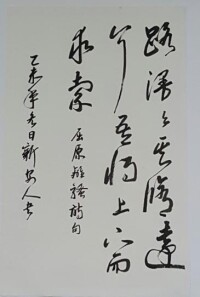 路漫々其脩遠
兮吾將上下而
求索 屈原離騷詩句
乙未年春日新安人书